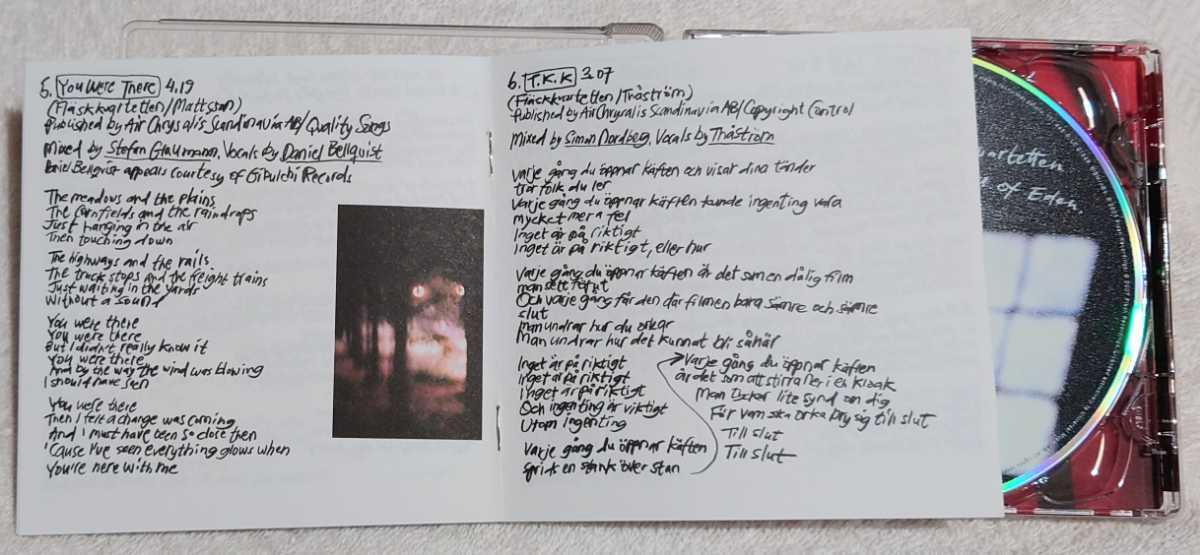 5. You Were There 4.19
(Fläskkvartetten/Mattsson)
Published by Air Chrysalis Scandinavia AB/Quality Songs
Mixed by Stefan Glaumann. Vocals by Daniel Bellqvist
Daniel Bellqvist appears courtesy of Records
The meadows and the plains
The cornfields and the raindrops
Just hanging in the air
Then touching down
The highways and the rails
The truck stops and the freight trains
Just waiting in the yards
Without a sound
You were there
You were there
But I didn't really know it
You were there
And by the way the wind was blowing
I should have seen
You were there
Then I felt a change was coming
And I must have been so close then
'Cause I've seen everything glows when
You're here with me
6. T.K.K 3.07
(Fläskkvartetten/Thåström)
Published by Air Chrysalis Scandinavia AB/Copyright Control
Mixed by Simon Nordberg. Vocals by Thåström
Varje gång du öppnar käften och visar dina tänder
tror folk du ler
Varje gång du öppnar käften kunde ingenting vara
mycket mera fel
Inget är på riktigt
Inget är på riktigt, eller hur
Varje gång du öppnar käften är det som en dålig film
man sett förut
Och varje gång får den där filmen bara sämre och sämre
slut
Man undrar hur du orkar
Man undrar hur det kunnat bli såhär
Inget är på riktigt
Inget är på riktigt
Inget är på riktigt
Och ingenting är viktigt
Utom ingenting
Varje gång du öppnar käften
Sprids en stank över stan
Varje gång du öppnar käften
är det som att stirra ner i en kloak
Man tycker lite synd om dig
För vem ska orka bry sig till slut
Till slut
Till slut
of Eden.